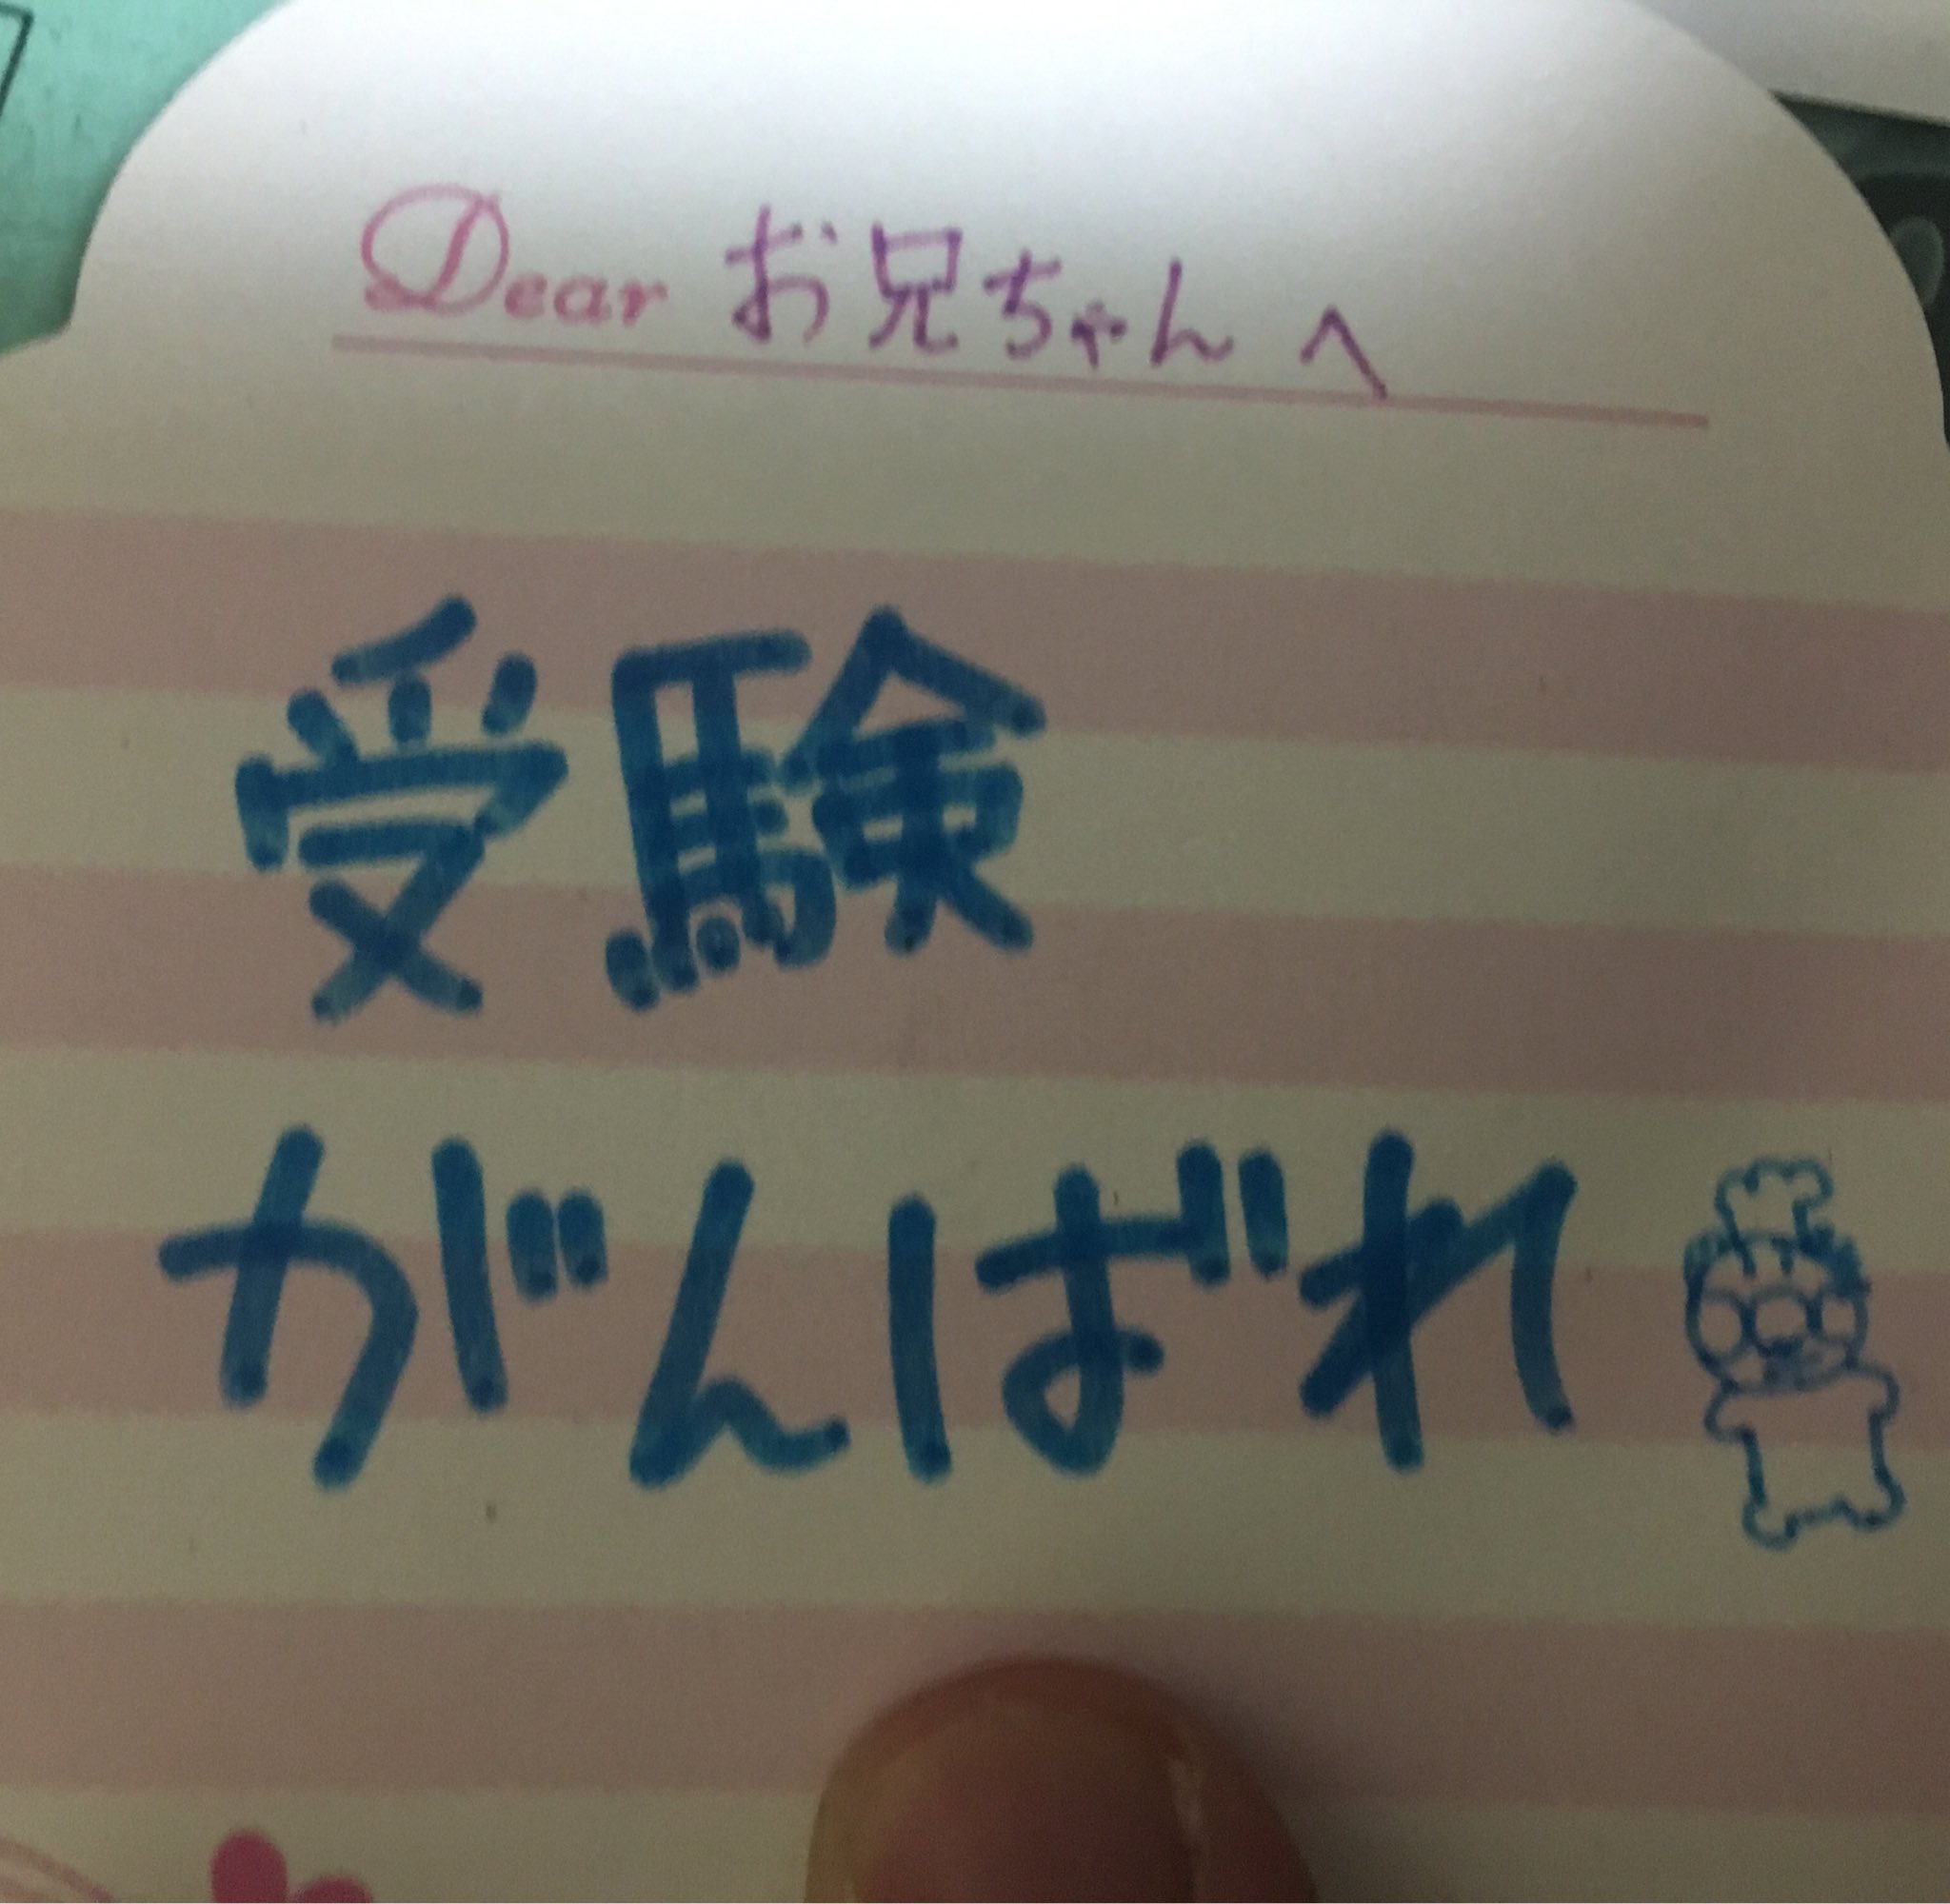 Dear お兄ちゃんへ
受験
がんばれ